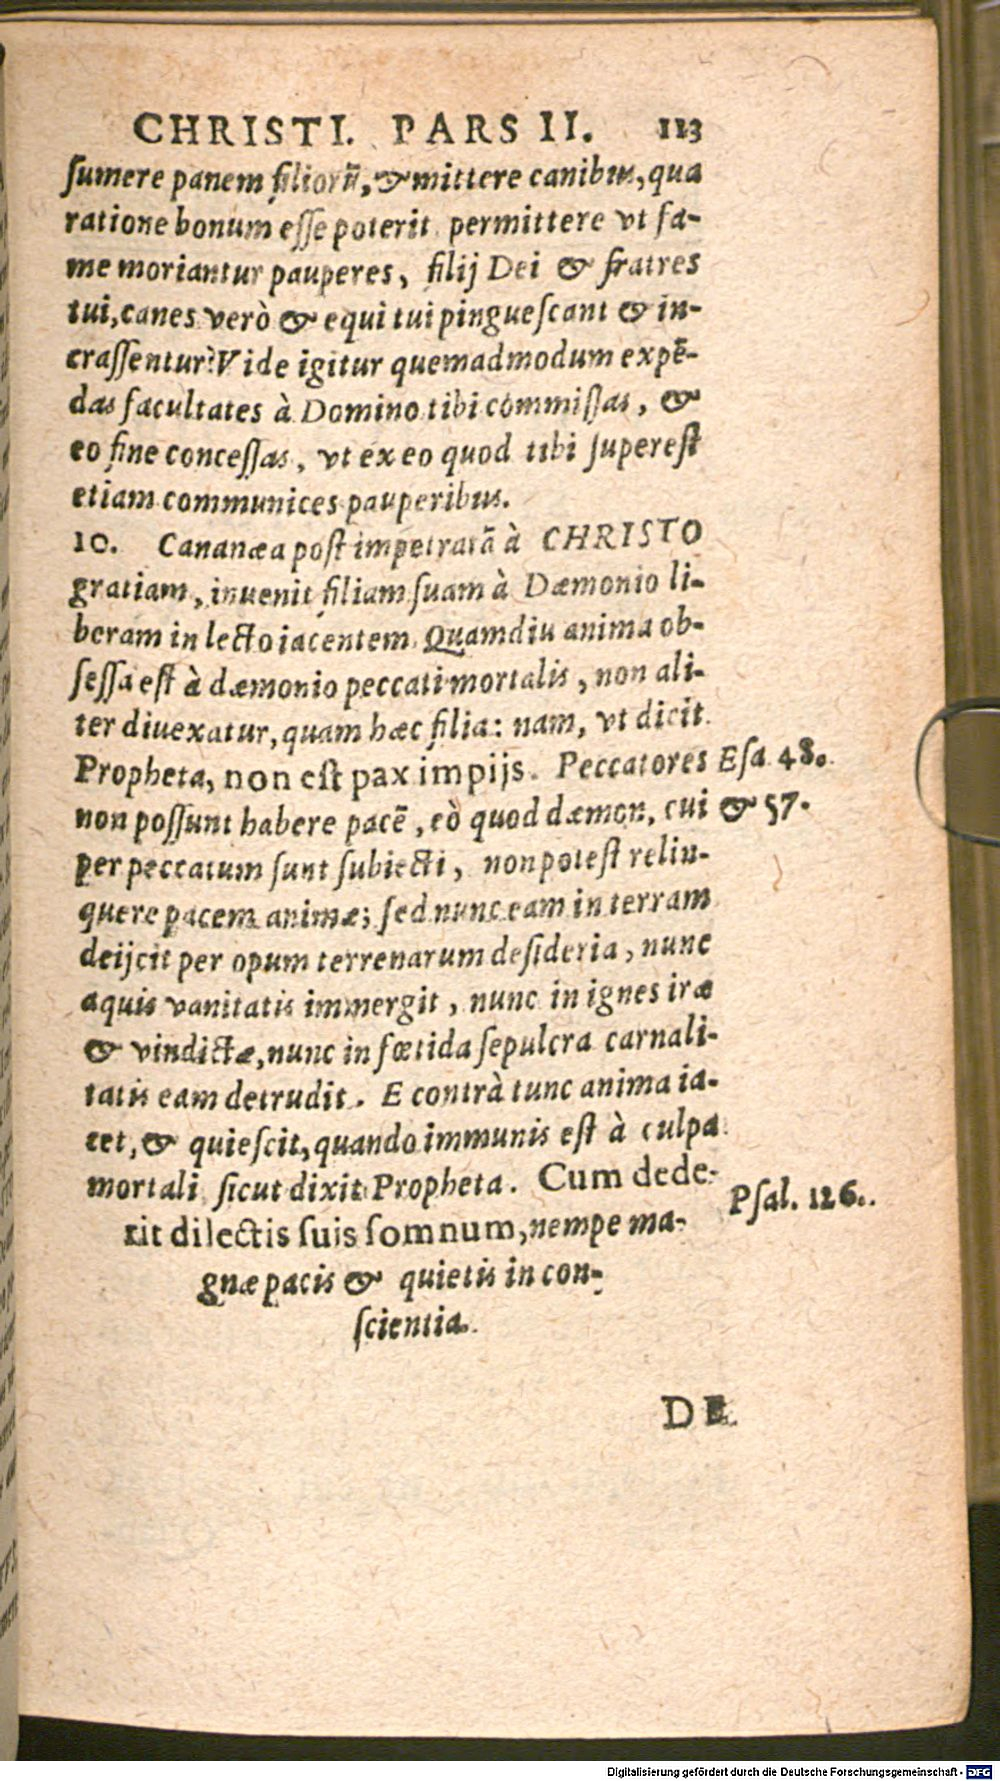 CHRISTI. PARS II. 113
ſumere panem filiorũ, & mittere canibus, qua
ratione bonum eſſe poterit permittere vt fa-
me moriantur pauperes, filij Dei & fratres
tui, canes verò & equi tui pingueſcant & in-
craſſentur? Vide igitur quemadmodum expẽ-
das facultates à Domino tibi commiſſas, &
eo fine conceſſas, vt ex eo quod tibi ſupereſt
etiam communices pauperibus.
10. Cananæa poſt impetratã à CHRISTO
gratiam, inuenit filiam ſuam à Dæmonio li-
beram in lecto iacentem. Quamdiu anima ob-
ſeſſa eſt à dæmonio peccati mortalis, non ali-
ter diuexatur, quam hæc filia: nam, vt dicit
Propheta, non eſt pax impijs. Peccatores Eſa 48.
non poſſunt habere pacẽ, eò quod dæmon, cui & 57.
per peccatum ſunt ſubiecti, non poteſt relin-
quere pacem animæ; ſed nunc eam in terram
deijcit per opum terrenarum deſideria, nunc
aquis vanitatis immergit, nunc in ignes iræ
& vindictæ, nunc in fœtida ſepulcra carnali-
tatis eam detrudit. E contrà tunc anima ia-
cet, & quieſcit, quando immunis eſt à culpa
mortali ſicut dixit Propheta. Cum dede-
rit dilectis ſuis ſomnum, nempe ma- Pſal. 126.
gnæ pacis & quietis in con-
ſcientia.
DE
Digitalisierung gefördert durch die Deutsche Forschungsgemeinschaft - DFG